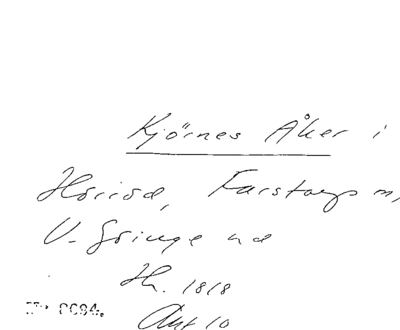 Kjörnes Åker i
Hörröd, Farstorps m,
V. Göinge hd
Ih. 1818
Akt 10